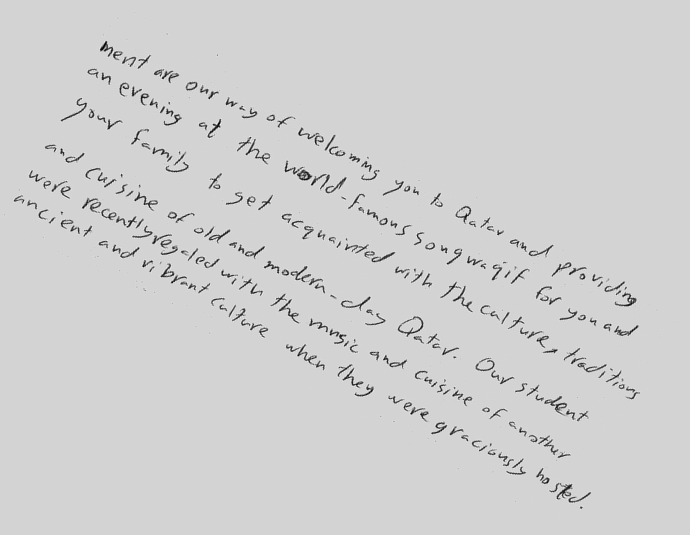 ment are our way of welcoming you to Qatar and providing
an evening at the world-famous songwaqif for you and
your family to get acquainted with the culture, traditions
and cuisine of old and modern-day Qatar. Our student
were recently regaled with the music and cuisine of another
ancient and vibrant culture when they were graciously hosted.